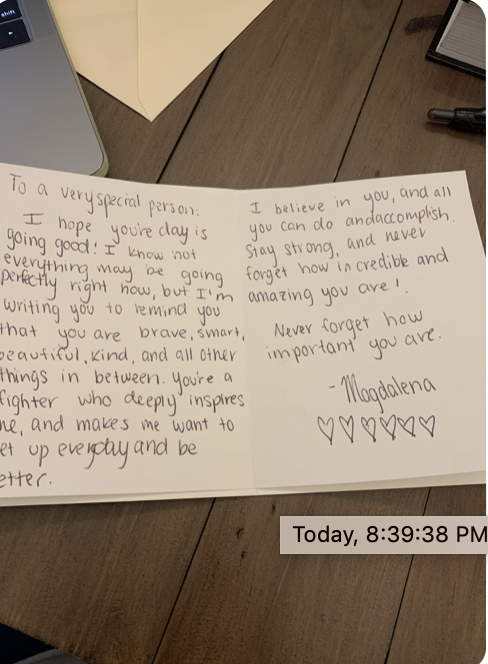 shift
To a very special person:
I hope you're day is
going good! I know not
everything may be going
perfectly right now, but I'm
writing you to remind you
that you are brave, smart,
beautiful, kind, and all other
things in between. You're a
fighter who deeply inspires
me, and makes me want to
et up everyday and be
etter.
I believe in you, and all
you can do and accomplish.
Stay strong, and never
forget how incredible and
amazing you are!
Never forget how
important you are.
- Magdalena
Today, 8:39:38 PM